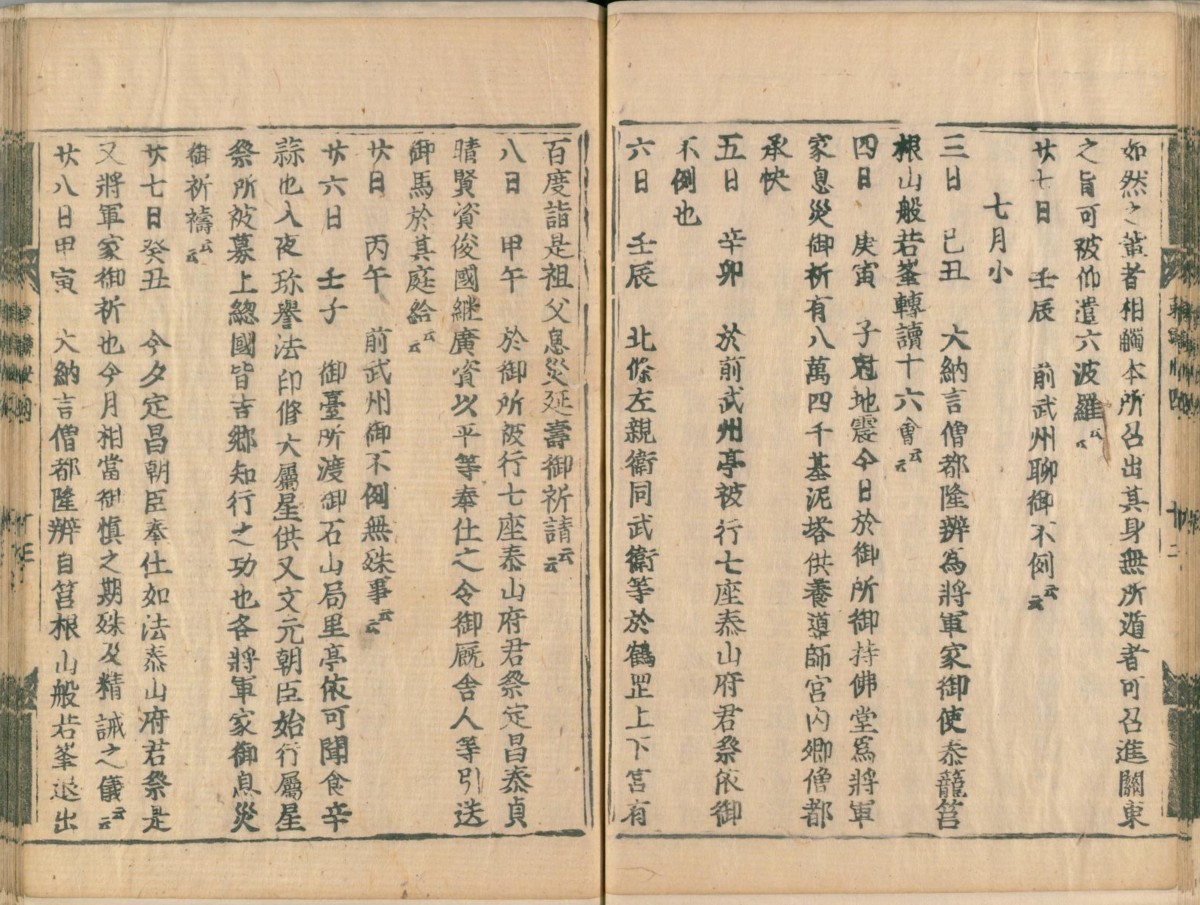 如然之輩者相觸本所召出其身無所遁者可召進關東
之旨可被仰遣六波羅云云
廿七日　壬辰　前武州聊御不例云云
七月小
三日　己丑　大納言僧都隆辨為將軍家御使叅籠筥
根山般若峯轉讀十六會云云
四日　庚寅　子尅地震今日於御所御持佛堂爲將軍
家息災御祈有八萬四千基泥塔供養導師宮内卿僧都
承快
五日　辛卯　於前武州亭被行七座泰山府君祭依御
不例也
六日　壬辰　北條左親衛同武衛等於鶴罡上下宮有
百度詣是祖父息災延壽御祈請云云
八日　甲午　於御所被行七座泰山府君祭定昌泰貞
晴賢資俊國継廣資以平等奉仕之令御厩舎人等引送
御馬於其庭給云云
廿日　丙午　前武州御不例無殊事云云
廿六日　壬子　御臺所渡御石山局里亭依可聞食辛
蒜也入夜珎譽法印修大屬星供又文元朝臣始行屬星
祭所被募上總國皆吉郷知行之功也各將軍家御息災
御祈禱云云
廿七日癸丑　今夕定昌朝臣奉仕如法泰山府君祭是
又將軍家御祈也今月相當御慎之期殊及精誠之儀云云
廿八日甲寅　大納言僧都隆辨自筥根山般若峯退出